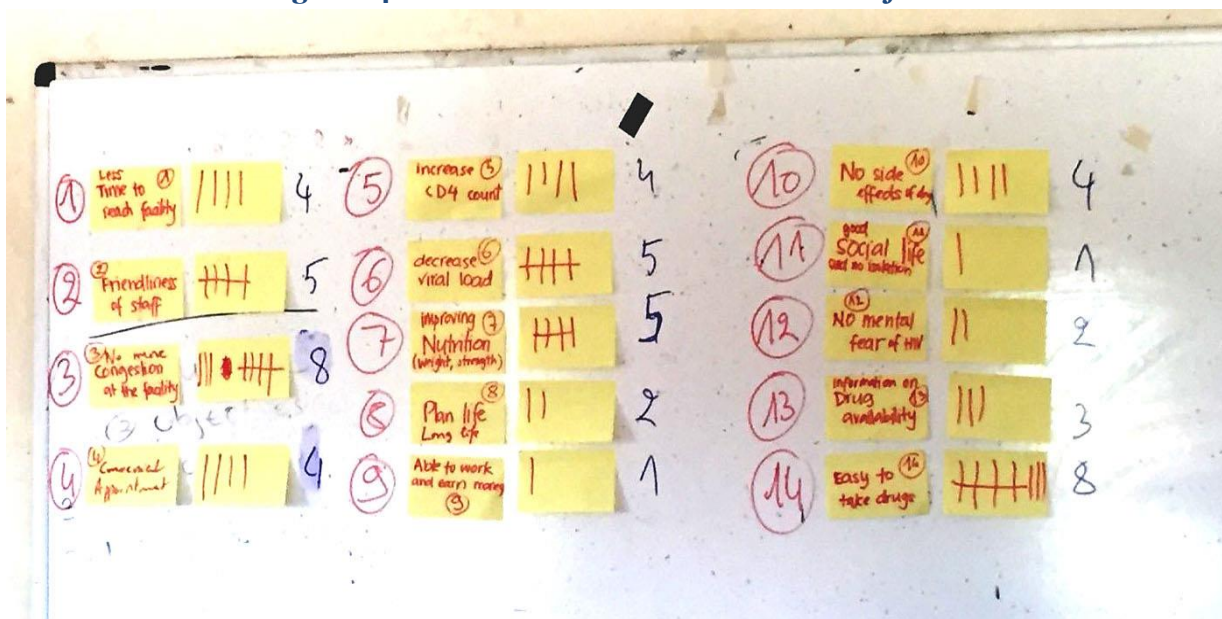 1
Less 1
Time to
reach facility
4
2
2
Friendliness
of staff
5
3
3 No more
Congestion
at the facility
8
4
4
Appointment
4
5
increase 5
CD4 count
4
6
decrease 6
viral load
5
7
improving 7
Nutrition
(weight, strength)
5
8
8
Plan life
Long life
2
9
Able to work
and earn money
9
1
10
10
No side
effects of drug
4
11
good 11
Social life
and no isolation
1
12
12
NO mental
fear of HIV
2
13
information on
Drug 13
availability
3
14
14
Easy to
take drugs
8